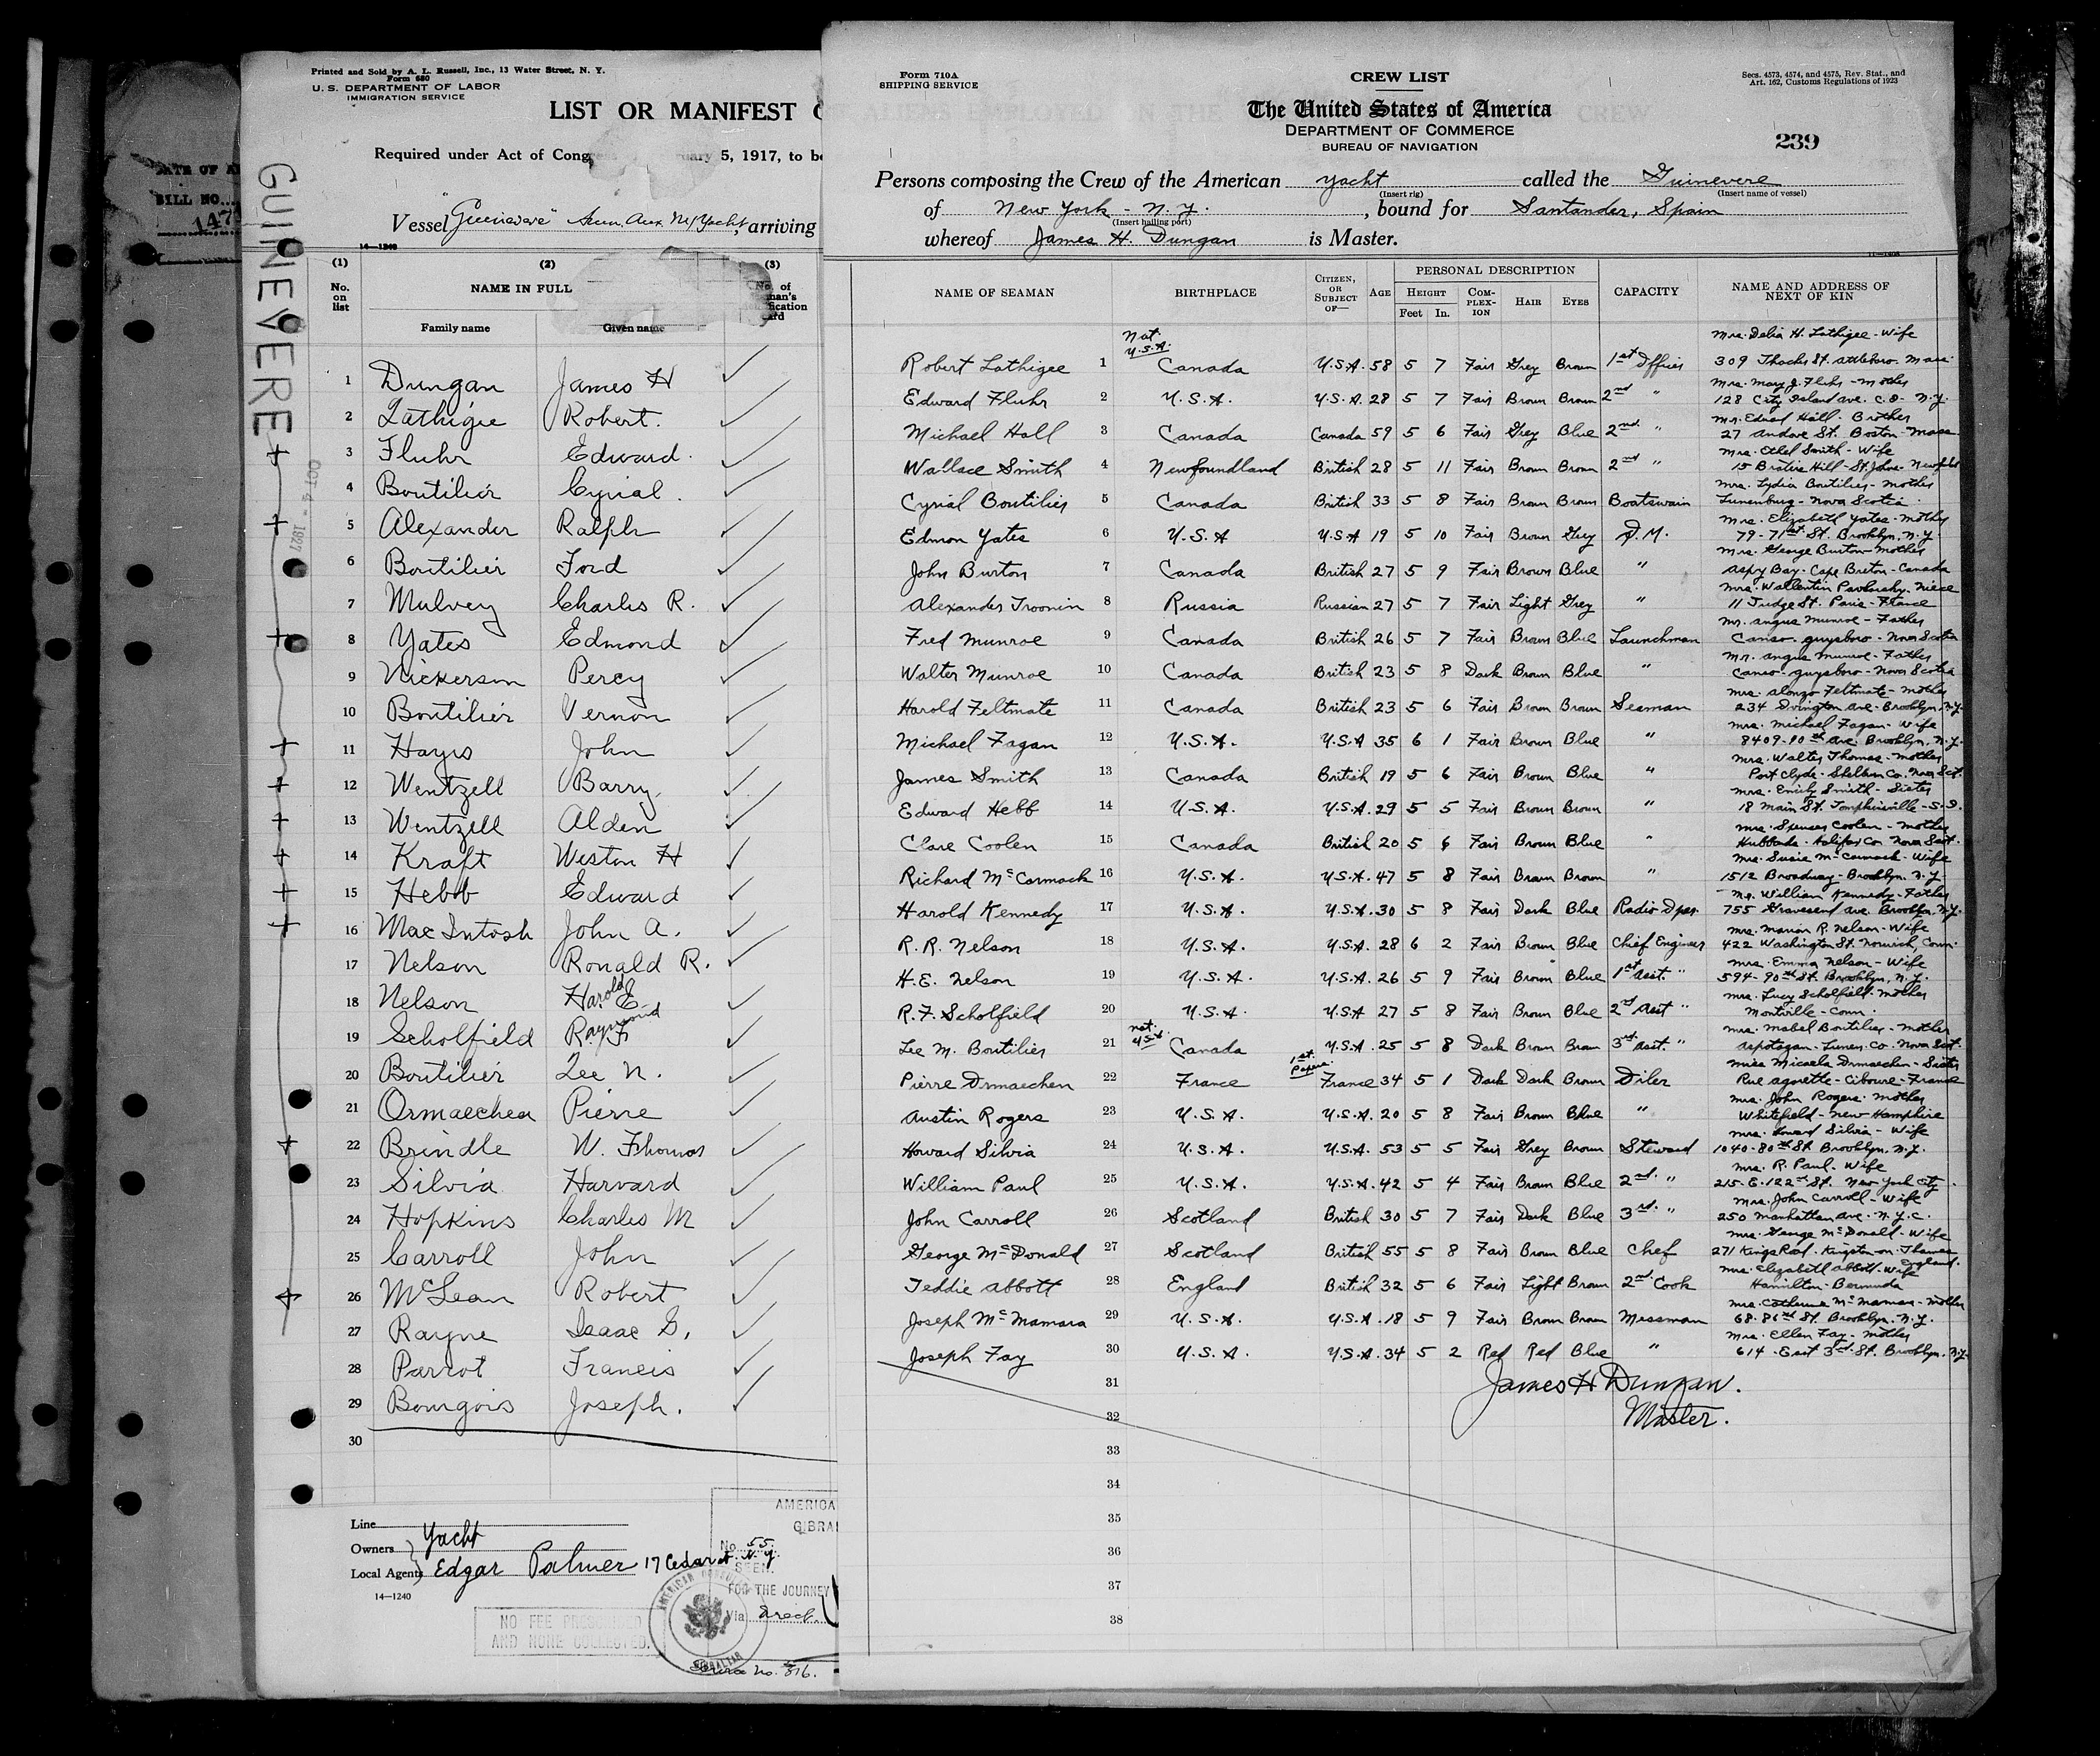 DATE OF A
BILL NO....
147
GUINEVERE
OCT 4 - 1927
Printed and Sold by A. L. Russell, Inc., 13 Water Street, N. Y.
Form 680
U. S. DEPARTMENT OF LABOR
IMMIGRATION SERVICE
LIST OR MANIFEST O
Required under Act of Cong uary 5, 1917, to be
Vessel "Guinevere" Aux. M/Yacht, arriving
14—1240
(1) (2) (3)
No. on list NAME IN FULL No. of
Family name Given name
1 Dungan James H
2 Lathigie Robert.
3 Fluhr Edward.
4 Boutilier Cyrial.
5 Alexander Ralph
6 Boutilier Ford
7 Mulvey Charles R.
8 Yates Edmond
9 Nickerson Percy
10 Boutilier Vernon
11 Hayes John
12 Wentzell Barry
13 Wentzell Alden
14 Kraft Weston H
15 Hebb Edward
16 MacIntosh John A.
17 Nelson Ronald R.
18 Nelson Harold E.
19 Scholfield Raymond F
20 Boutilier Lee N.
21 Ormaechea Pierre
22 Brindle W. Thomas
23 Silvia Harvard
24 Hopkins Charles M
25 Carroll John
26 McLean Robert
27 Rayne Isaac G.
28 Parrot Francis
29 Bourgois Joseph.
30
Line
Owners Yacht
Local Agents Edgar Palmer 17 Cedar st. N.Y.
14—1240
AMERICA
GIBRA
No. 55
SEEN.
FOR THE JOURNEY
Via Direct.
NO FEE PRESCRIBED
AND NONE COLLECTED.
AMERICAN CONSULATE
GIBRALTAR
Service No. 816.
Form 710A
SHIPPING SERVICE
CREW LIST
The United States of America
DEPARTMENT OF COMMERCE
BUREAU OF NAVIGATION
Secs. 4573, 4574, and 4575, Rev. Stat., and
Art. 162, Customs Regulations of 1923
239
Persons composing the Crew of the American yacht called the Guinevere
(Insert rig) (Insert name of vessel)
of New York - N.Y. , bound for Santander, Spain
(Insert hailing port)
whereof James H. Dungan is Master.
NAME OF SEAMAN BIRTHPLACE CITIZEN, OR SUBJECT OF— AGE PERSONAL DESCRIPTION CAPACITY NAME AND ADDRESS OF NEXT OF KIN
HEIGHT COMPLEXION HAIR EYES
Feet In.
Nat U.S.A. Mrs. Delia H. Lathigee - Wife
Robert Lathigee 1 Canada U.S.A. 58 5 7 Fair Grey Brown 1st Officer 309 Thacher St. Attleboro. Mass.
Mrs. Mary J. Fluhr - Mother
Edward Fluhr 2 U.S.A. U.S.A. 28 5 7 Fair Brown Brown 2nd " 128 City Island Ave. C.I. N.Y.
Mr. Edward Hall. Brother
Michael Hall 3 Canada Canada 59 5 6 Fair Grey Blue 2nd " 27 Andove St. Boston - Mass.
Mrs. Ethel Smith - Wife
Wallace Smith 4 Newfoundland British 28 5 11 Fair Brown Brown 2nd " 15 Hill - St. Johns - Newfld
Mrs. Lydia Boutilier - Mother
Cyrial Boutilier 5 Canada British 33 5 8 Fair Brown Brown Boatswain Lunenburg - Nova Scotia
Mrs. Elizabeth Yates - Mother
Edmon Yates 6 U.S.A U.S.A 19 5 10 Fair Brown Grey Q.M. 79-71st St. Brooklyn, N.Y.
Mrs. George Burton - Mother
John Burton 7 Canada British 27 5 9 Fair Brown Blue " Aspy Bay - Cape Breton - Canada
Mrs. Wallentin Pavlovsky. Niece
Alexander Troonin 8 Russia Russian 27 5 7 Fair Light Grey " 11 Judge St. Paris - France
Mr. Angus Munroe - Father
Fred Munroe 9 Canada British 26 5 7 Fair Brown Blue Launchman Canso - Guysboro - Nova Scotia
Mr. Angus Munroe - Father
Walter Munroe 10 Canada British 23 5 8 Dark Brown Blue " Canso - Guysboro - Nova Scotia
Mrs. Alonzo Feltmate - Mother
Harold Feltmate 11 Canada British 23 5 6 Fair Brown Brown Seaman 234 Ovington Ave. Brooklyn. N.Y.
Mrs. Michael Fagan - Wife
Michael Fagan 12 U.S.A. U.S.A 35 6 1 Fair Brown Blue " 8409-10th Ave. Brooklyn. N.Y.
Mrs. Walter Thomas - Mother
James Smith 13 Canada British 19 5 6 Fair Brown Blue " Port Clyde - Shelburn Co. Nova Scot.
Mrs. Emily Smith - Sister
Edward Hebb 14 U.S.A. U.S.A. 29 5 5 Fair Brown Brown " 18 Main St. Tompkinsville - S.I.
Mrs. Spenser Coolen - Mother
Clare Coolen 15 Canada British 20 5 6 Fair Brown Blue " Hubbards - Halifax Co. Nova Scot.
Mrs. Susie McCormack - Wife
Richard McCormack 16 U.S.A. U.S.A. 47 5 8 Fair Brown Brown " 1512 Broadway - Brooklyn. N.Y.
Mr. William Kennedy - Father
Harold Kennedy 17 U.S.A. U.S.A. 30 5 8 Fair Dark Blue Radio Oper. 755 Gravesend Ave. Brooklyn, N.Y.
Mrs. Marion R. Nelson - Wife
R. R. Nelson 18 U.S.A. U.S.A. 28 6 2 Fair Brown Blue Chief Engineer 422 Washington St. Norwich, Conn.
Mrs. Emma Nelson - Wife
H. E. Nelson 19 U.S.A. U.S.A. 26 5 9 Fair Brown Blue 1st Asst. " 594-90th St. Brooklyn, N.Y.
Mrs. Lucy Scholfield - Mother
R. F. Scholfield 20 U.S.A. U.S.A 27 5 8 Fair Brown Blue 2nd Asst " Montville - Conn.
Nat. U.S.A. Mrs. Mabel Boutilier - Mother
Lee M. Boutilier 21 Canada U.S.A. 25 5 8 Dark Brown Brown 3rd Asst. " Aspotogan - Lunen. Co. Nova Scot.
1st Papers Miss Micaela Ormaechen - Sister
Pierre Ormaechen 22 France France 34 5 1 Dark Dark Brown Oiler Rue Agorette - Ciboure - France
Mrs. John Rogers. Mother
Austin Rogers 23 U.S.A. U.S.A. 20 5 8 Fair Brown Blue " Whitefield - New Hampshire
Mrs. Howard Silvia - Wife
Howard Silvia 24 U.S.A. U.S.A. 53 5 5 Fair Grey Brown Steward 1040-80th St. Brooklyn, N.Y.
Mrs. R. Paul - Wife
William Paul 25 U.S.A. U.S.A. 42 5 4 Fair Brown Blue 2nd " 215-E. 122nd St. New York City
Mrs. John Carroll - Wife
John Carroll 26 Scotland British 30 5 7 Fair Dark Blue 3rd " 250 Manhattan Ave. N.Y.C.
Mrs. George McDonald - Wife
George McDonald 27 Scotland British 55 5 8 Fair Brown Blue Chef 271 Kings Road. Kingston on Thames England.
Mrs. Elizabeth Abbott - Wife
Teddie Abbott 28 England British 32 5 6 Fair Light Brown 2nd Cook Hamilton - Bermuda
Mrs. Catherine McMamara - Mother
Joseph McMamara 29 U.S.A. U.S.A. 18 5 9 Fair Brown Brown Messman 68-86th St. Brooklyn. N.Y.
Mrs. Ellen Fay - Mother
Joseph Fay 30 U.S.A. U.S.A. 34 5 2 Red Red Blue " 614 East 3rd St. Brooklyn. N.Y.
31 James H Dungan.
32 Master.
33
34
35
36
37
38